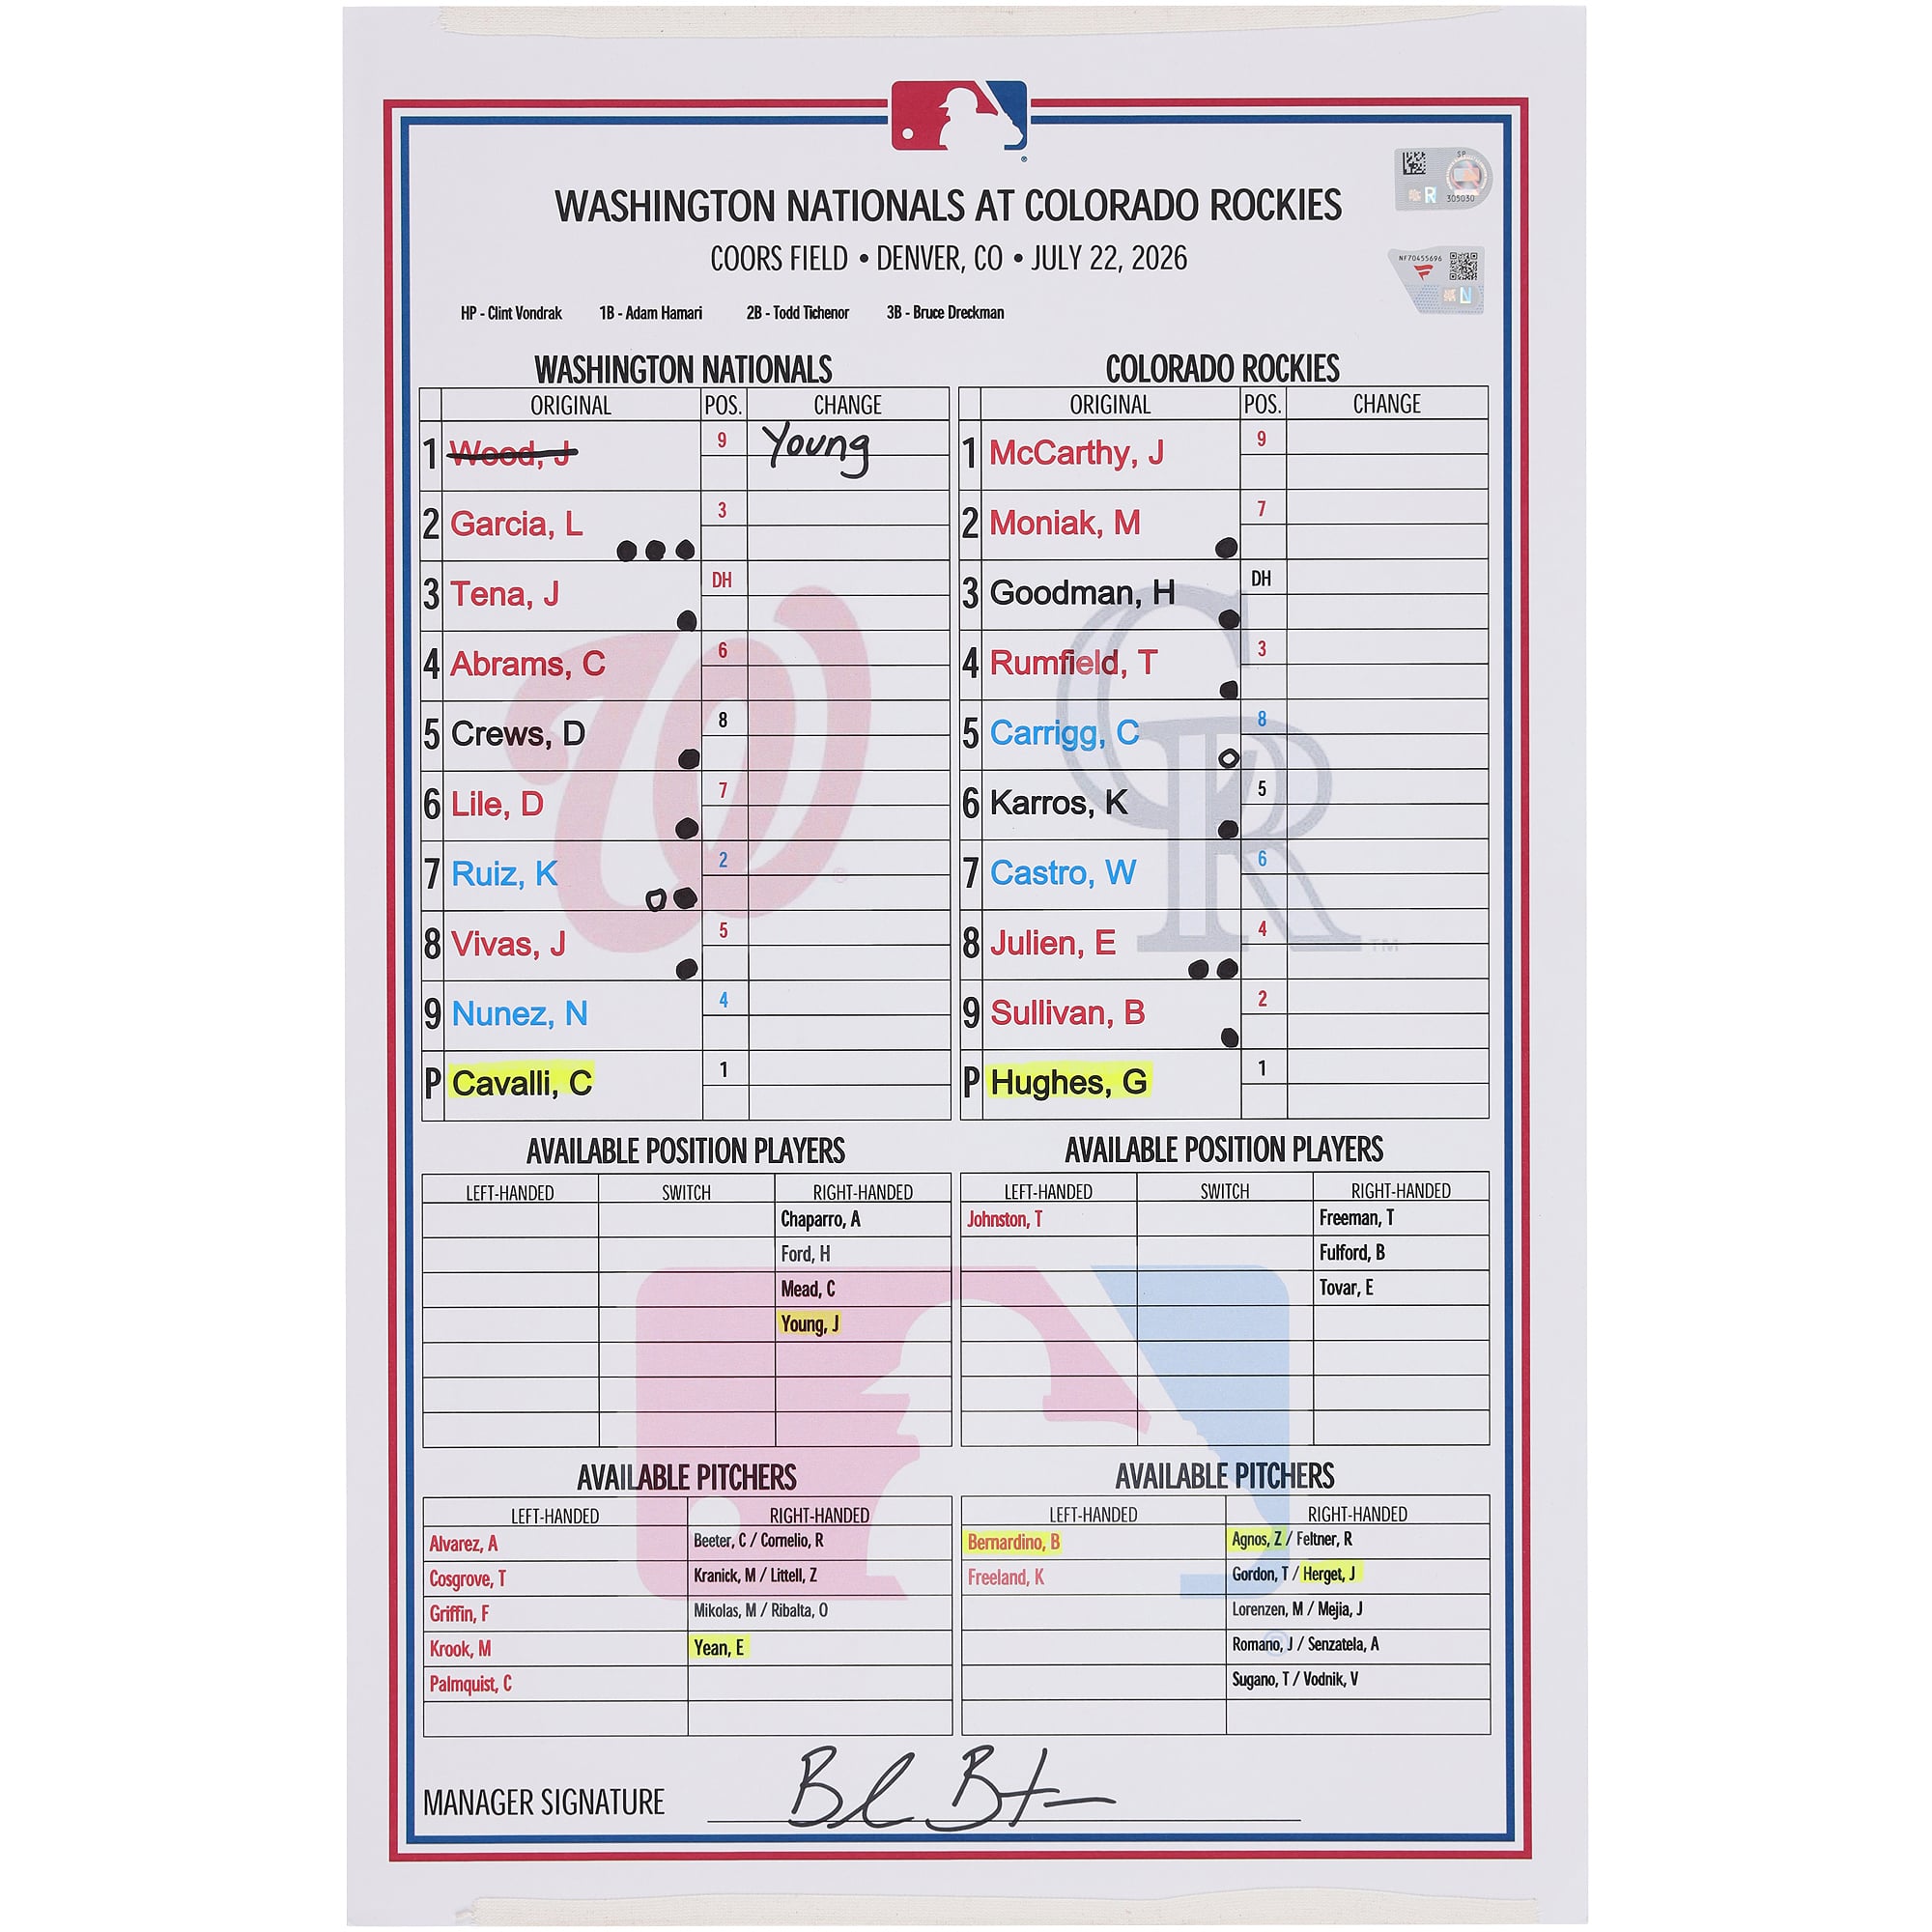 WASHINGTON NATIONALS AT COLORADO ROCKIES
COORS FIELD • DENVER, CO • JULY 22, 2026
SP
R
305030
NF70455696
N
HP - Clint Vondrak 1B - Adam Hamari 2B - Todd Tichenor 3B - Bruce Dreckman
WASHINGTON NATIONALS
ORIGINAL POS. CHANGE
1 Wood, J 9 Young
2 Garcia, L 3
3 Tena, J DH
4 Abrams, C 6
5 Crews, D 8
6 Lile, D 7
7 Ruiz, K 2
8 Vivas, J 5
9 Nunez, N 4
P Cavalli, C 1
COLORADO ROCKIES
ORIGINAL POS. CHANGE
1 McCarthy, J 9
2 Moniak, M 7
3 Goodman, H DH
4 Rumfield, T 3
5 Carrigg, C 8
6 Karros, K 5
7 Castro, W 6
8 Julien, E 4
9 Sullivan, B 2
P Hughes, G 1
W
CR
TM
AVAILABLE POSITION PLAYERS
LEFT-HANDED SWITCH RIGHT-HANDED
Chaparro, A
Ford, H
Mead, C
Young, J
AVAILABLE POSITION PLAYERS
LEFT-HANDED SWITCH RIGHT-HANDED
Johnston, T Freeman, T
Fulford, B
Tovar, E
AVAILABLE PITCHERS
LEFT-HANDED RIGHT-HANDED
Alvarez, A Beeter, C / Cornelio, R
Cosgrove, T Kranick, M / Littell, Z
Griffin, F Mikolas, M / Ribalta, O
Krook, M Yean, E
Palmquist, C
AVAILABLE PITCHERS
LEFT-HANDED RIGHT-HANDED
Bernardino, B Agnos, Z / Feltner, R
Freeland, K Gordon, T / Herget, J
Lorenzen, M / Mejia, J
Romano, J / Senzatela, A
Sugano, T / Vodnik, V
MANAGER SIGNATURE